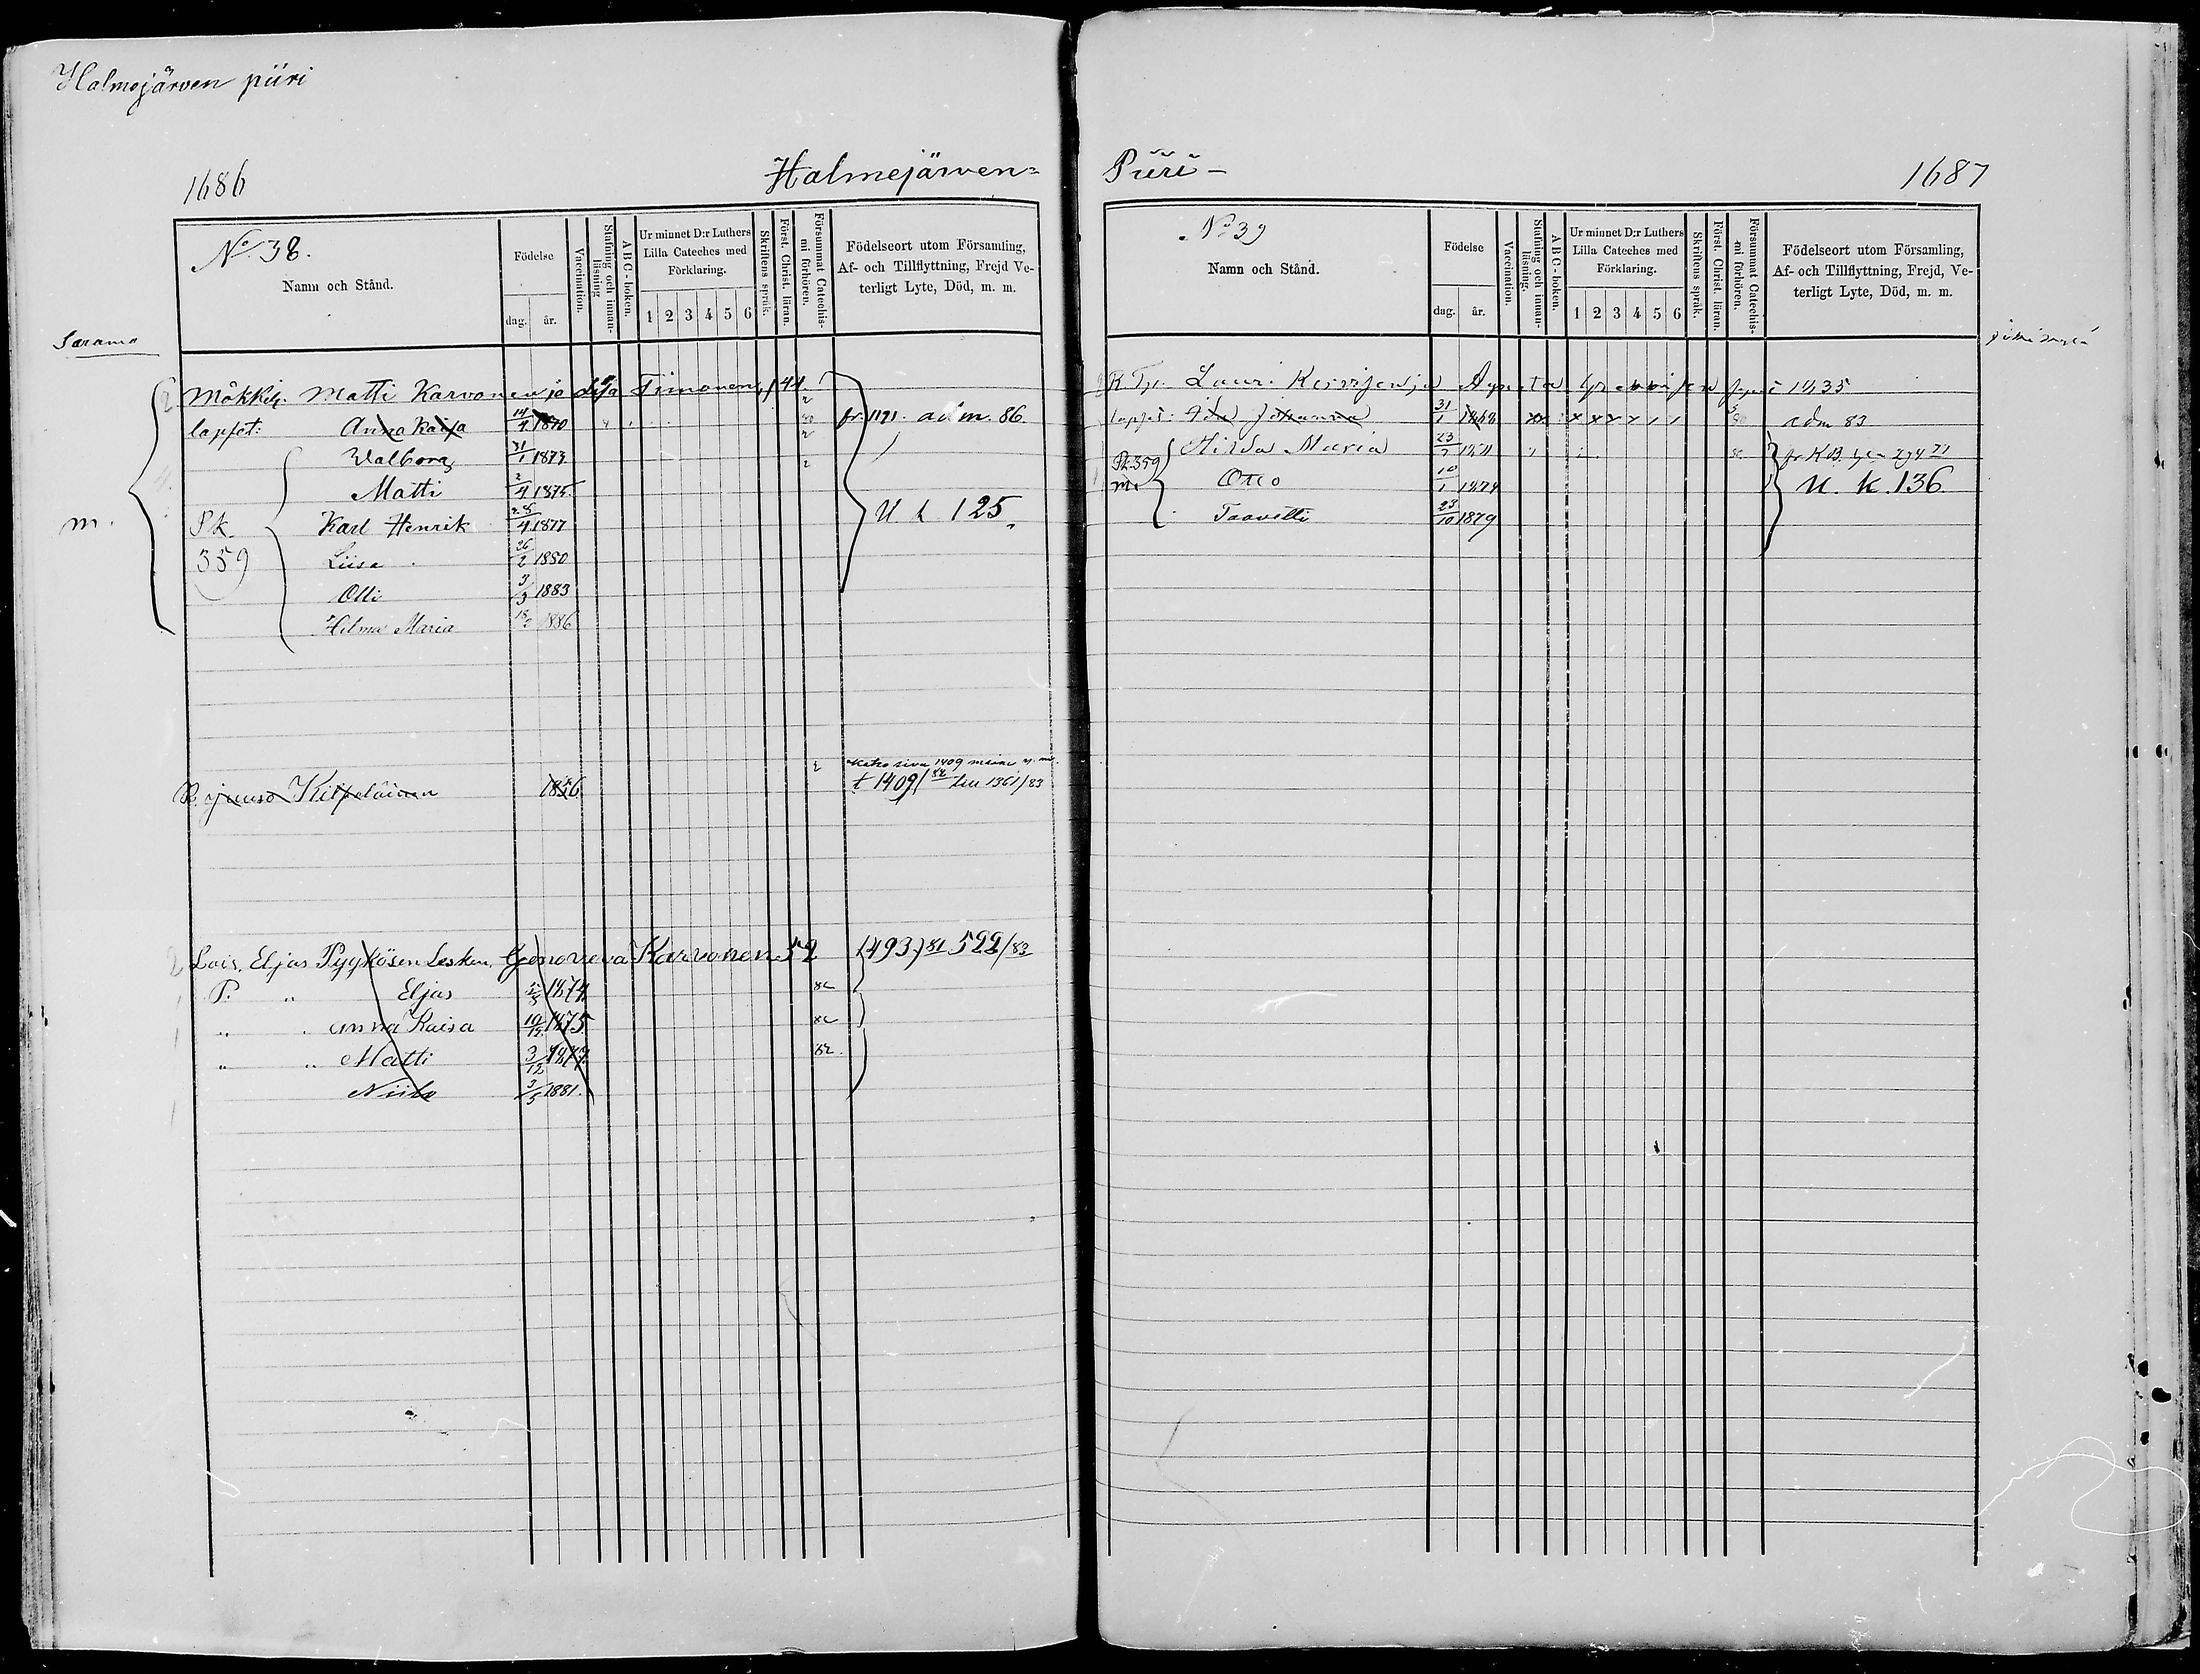 Halmejärven piiri
1686
Halmejärven=
No. 38.
Namn och Stånd.
Födelse
dag. år.
Vaccination.
Stafning och innanläsning
ABC-boken.
Ur minnet D:r Luthers Lilla Cateches med Förklaring.
1 2 3 4 5 6
Skriftens språk.
Först. Christ. läran.
Försummat Catechismi förhören.
Födelseort utom Församling, Af- och Tillflyttning, Frejd Veterligt Lyte, Död, m. m.
Sarama
Mökkil. Matti Karvonen ja Liisa Timonen, 41.
lapset: Anna Kaisa 14/4 1870 fr. 1121. adm. 86.
Valborg 31/1 1873
Matti 2/4 1875.
m. Sk. Karl Henrik 28/4 1877 U k 125
359 Liisa 26/2 1880
Olli 3/3 1883
Hilma Maria 1886
R. Juuso Kilpeläinen 1836 t 1409/82 1361/83
Lois. Eljas Pyykösen Lesken Genoveva Karvonen 52 1493/81 522/83
P. " Eljas 5/5 1874 82
" " Anna Kaisa 10/12 1875 82
" " Matti 3/12 1877 82.
Niilo 3/5 1881.
Piiri-
1687
No 39
Namn och Stånd.
Födelse
dag. år.
Vaccination.
Stafning och innanläsning.
ABC-boken.
Ur minnet D:r Luthers Lilla Cateches med Förklaring.
1 2 3 4 5 6
Skriftens språk.
Först. Christ. läran.
Försummat Catechismi förhören.
Födelseort utom Församling, Af- och Tillflyttning, Frejd, Veterligt Lyte, Död, m. m.
Lauri 1435
lapset: Ida Johanna 31/1 1868 adm 83
Hilda Maria 23
Pk. 359 Otto 10/1 1874 U. k. 136
m.
Taavitti 23/10 1879